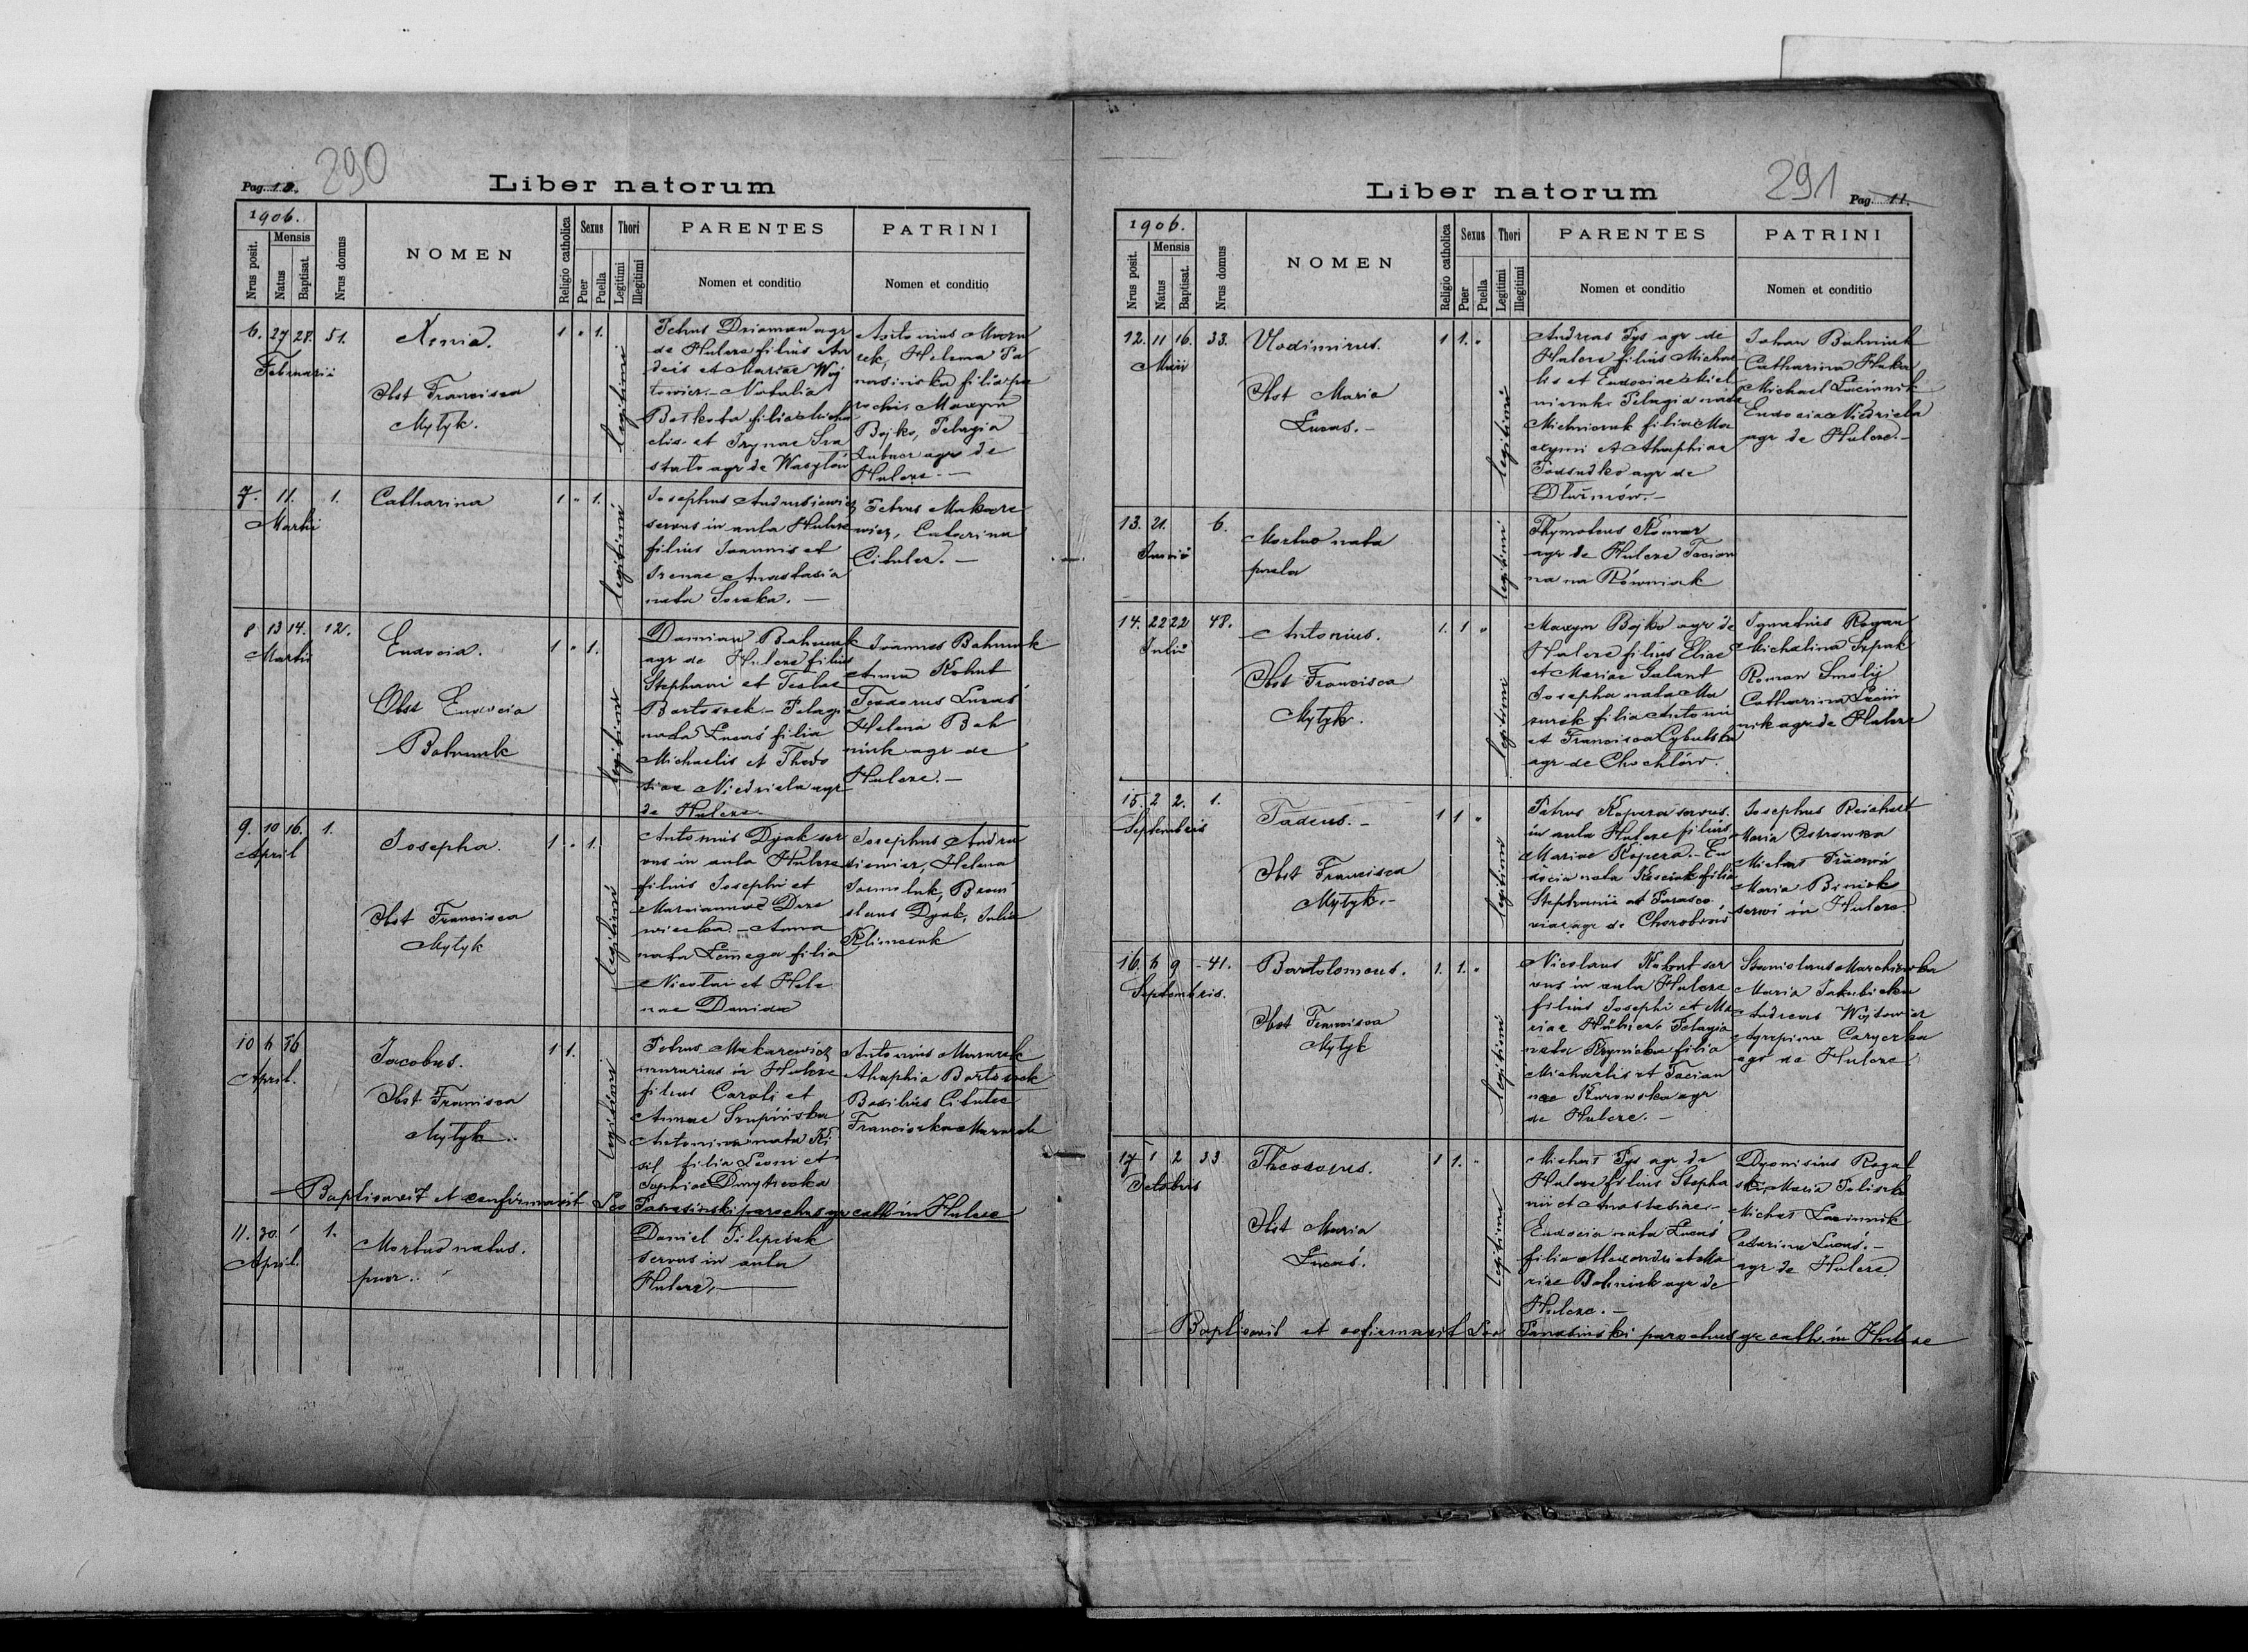 290
Pag. 10.
Liber natorum
1906.
Nrus posit.
Mensis
Natus
Baptisat.
Nrus domus
NOMEN
Religio catholica
Sexus
Puer
Puella
Thori
Legitimi
Illegitimi
PARENTES
Nomen et conditio
PATRINI
Nomen et conditio
6. 27 28. 51.
Februarii
Xenia.
Obst Francisca
Mytyk.
1 " 1.
legitimi
Petrus Dziaman agr
de Hulcze filius An
dreis et Mariae Woj
towicz - Natalia
filia Micha
elis et Irynae Sva
agr de Wasylów
Antonius Mazu
rek, Helena Ta
nasinska filia pa
rochi, Maxym
Bojko, Pelagia
agr de
Hulcze. -
7. 11. 1.
Martii
Catharina
1 " 1.
legitimi
Josephus Andrusiewicz
servus in aula Hulcze
filius Joannis et
Irenae Anastasia
nata Soroka. -
Petrus Makare
wicz, Catarina
Cibulea. -
8 13 14. 12.
Martii
Eudocia.
Obst Eudocia
Bahniuk
1 " 1.
legitimi
Damian Bahniuk
agr de Hulcze filius
Stephani et Teclae
Bartoszek - Pelagia
nata Lucaś filia
Michaelis et Theodo
siae Niedziela agr
de Hulcze.
Joannes Bahniuk
Anna Kohut
Teodorus Lucaś
Helena Bah
niuk agr de
Hulcze. -
9. 10 16. 1.
April
Josepha.
Obst Francisca
Mytyk
1 " 1.
legitimi
Antonius Dyak ser
vus in aula Hulcze
filius Josephi et
Mariannae Drze
wiecka - Anna
nata Łemega filia
Nicolai et Hele
nae Danida
Josephus Andru
siewicz, Helena
Jarmoluk, Broni
slaus Dyak, Julia
Klimczuk
10 6 16
April.
Jacobus.
Obst Francisca
Mytyk.
1 1.
legitimi
Petrus Makarewicz
murarius in Hulcze
filius Caroli et
Annae Supińska
Antonina nata Ki
sil filia Leoni et
Sophiae Dmytrocka
Antonius Mazurek
Ahaphia Bartoszek
Basilius Cibulec
Franciszka Mazurek
Baptisavit et confirmavit Leo Tanasinski parochus gr cath in Hulcze
11. 30. 1 1.
April.
Mortuo natus.
puer.
Daniel Pilipczuk
servus in aula
Hulcze. -
291
Liber natorum
Pag. 11.
1906.
Nrus posit.
Mensis
Natus
Baptisat.
Nrus domus
NOMEN
Religio catholica
Sexus
Puer
Puella
Thori
Legitimi
Illegitimi
PARENTES
Nomen et conditio
PATRINI
Nomen et conditio
12. 11 16. 33.
Maii
Vlodimirus.
Obst Maria
Lucas. -
1 1. "
legitimi
Andreas Tys agr de
Hulcze filius Michae
lis et Eudociae Mich
niczuk Pelagia nata
Michniczuk filia Ma
xymi et Ahaphiae
Podsudko agr de
Dłużniów. -
Johan Bahniuk
Catharina
Michael
Eudocia Niedziela
agr de Hulcze. -
13. 21. 6.
Junii
Mortuo nata
puela
legitimi
Thymoteus Komar
agr de Hulcze Tacian
na na Równiak
14. 22 22 48.
Julii
Antonius.
Obst Francisca
Mytyk.
1. 1 "
legitimi
Maxym Bojko agr de
Hulcze filius Eliae
et Mariae Galant
Josepha nata Ma
zurek filia Antonii
et Francisca Cybulska
agr de Chochłów.
Ignatius Rogan
Michalina Szpak
Roman Smolij
Catharina
nik agr de Hulcze
15. 2 2. 1.
Septembris
Tadeus. -
Obst Francisca
Mytyk. -
1 1 "
legitimi
Petrus Kopera servus.
in aula Hulcze filius
Mariae Kopera. - Eu
docia nata filia
Stephanii et Parasce
viae agr de Chorobrów
Josephus Reichert
Maria Ostrowska
Michał
Maria
servi in Hulcze.
16. 6 9 - 41.
Septembris.
Bartolomeus.
Obst Francisca
Mytyk
1. 1. "
legitimi
Nicolaus Kohut ser
vus in aula Hulcze
filius Josephi et Ma
riae Pelagia
nata filia
Michaelis et Tacian
nae Kurowska agr
de Hulcze. -
Stanislaus
Maria Jakubicka
Andreas Wojtowicz
agr de Hulcze.
17 1 2 33
Octobris
Theodorus.
Obst Maria
Lucaś.
1 1. "
legitimi
Michał Tys agr de
Hulcze filius Stepha
nii et Anastasiae. -
Eudocia nata Lucaś
filia Alexandri et Ma
riae Bahniuk agr de
Hulcze. -
Dyonisius Rogal
ski, Maria
Michał
Catarina Lucaś. -
agr de Hulcze.
Baptisavit et cofirmavit Leo Tanasinski parochus gr cath. in Hulcze